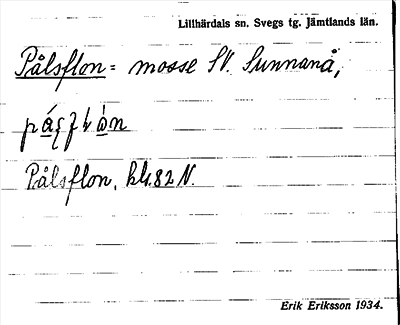 Lillhärdals sn. Svegs tg. Jämtlands län.
Pålsflon = mosse SV. Sunnanå,
Pålsflon, bl. 82 N.
Erik Eriksson 1934.